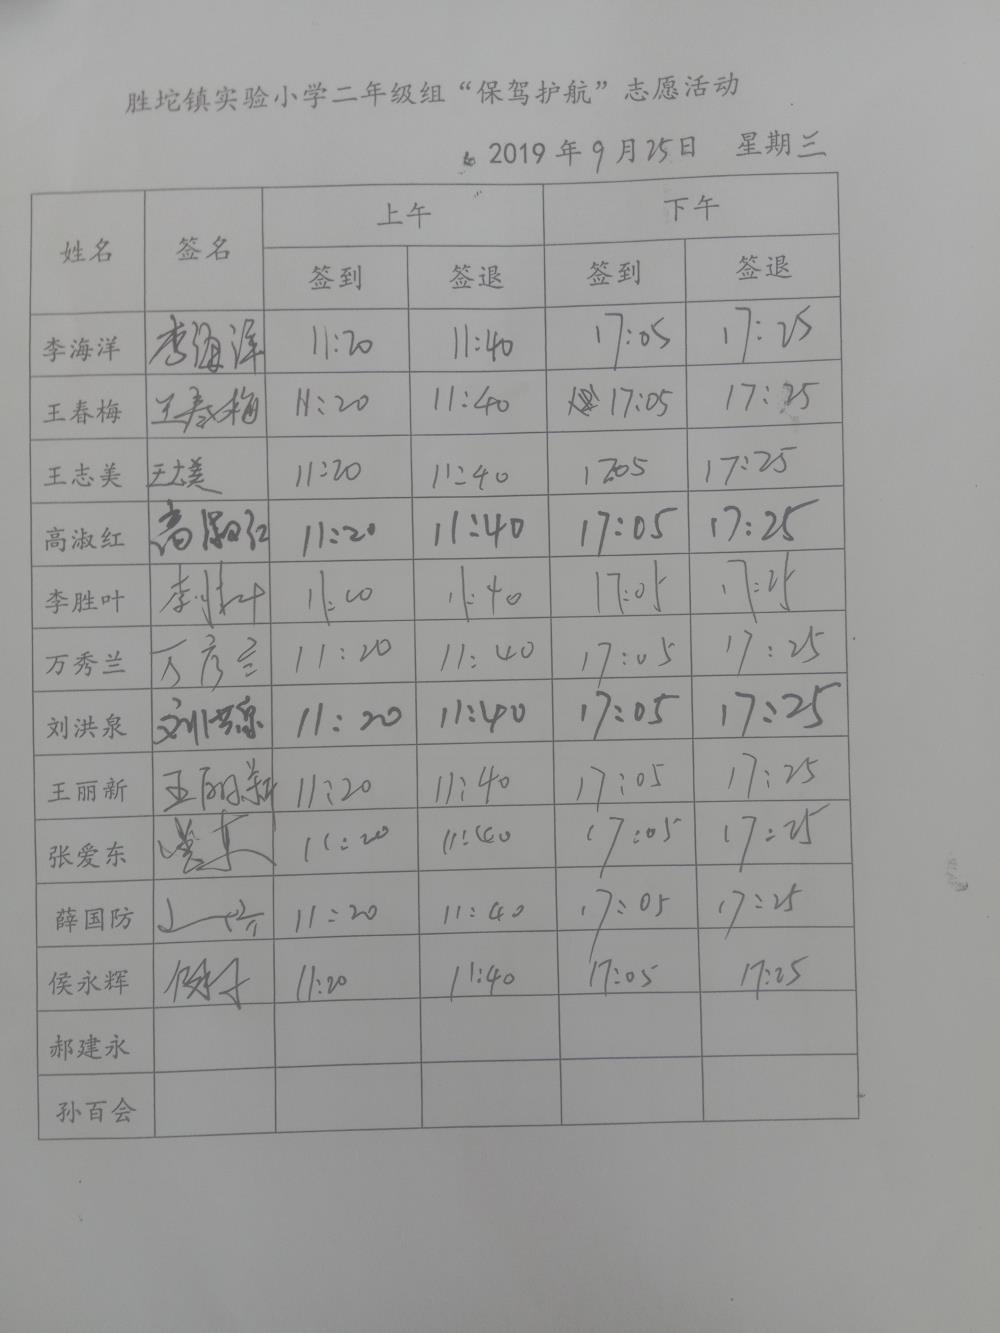 胜坨镇实验小学二年级组“保驾护航”志愿活动
2019年9月25日 星期三
姓名 签名 上午 下午
签到 签退 签到 签退
李海洋 李海洋 11:20 11:40 17:05 17:25
王春梅 王春梅 11:20 11:40 17:05 17:25
王志美 王志美 11:20 11:40 1705 17:25
高淑红 高淑红 11:20 11:40 17:05 17:25
李胜叶 李胜叶 11:20 11:40 17:05 17:25
万秀兰 万秀兰 11:20 11:40 17:05 17:25
刘洪泉 刘洪泉 11:20 11:40 17:05 17:25
王丽新 王丽新 11:20 11:40 17:05 17:25
张爱东 11:20 11:40 17:05 17:25
薛国防 11:20 11:40 17:05 17:25
侯永辉 11:20 11:40 17:05 17:25
郝建永
孙百会